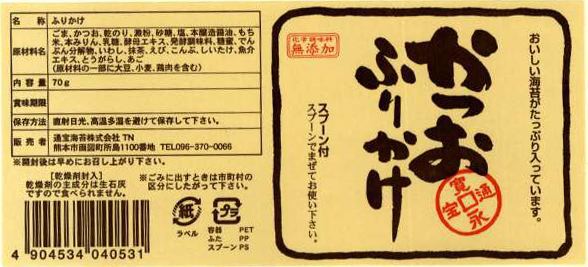 名　称　ふりかけ
原材料名　ごま、かつお、乾のり、澱粉、砂糖、塩、本醸造醤油、もち
米、本みりん、乳糖、酵母エキス、発酵調味料、糖蜜、でん
ぷん分解物、いわし、抹茶、えび、こんぶ、しいたけ、魚介
エキス、とうがらし、あご
(原材料の一部に大豆、小麦、鶏肉を含む)
内容量　70g
賞味期限
保存方法　直射日光、高温多湿を避けて保存して下さい。
販売者　通宝海苔株式会社 TN
熊本市画図町所島1100番地 TEL096-370-0066
※開封後は早めにお召し上がり下さい。
[乾燥剤封入]
乾燥剤の主成分は生石灰
ですので食べられません。
※ごみに出すときは市町村の
区分にしたがって下さい。
4 904534 040531
紙
ラベル
プラ
容器　PET
ふた　PP
スプーン PS
おいしい海苔がたっぷり入っています。
かつお
ふりかけ
化学調味料
無添加
スプーン付
スプーンでまぜてお使い下さい。
寛永通宝